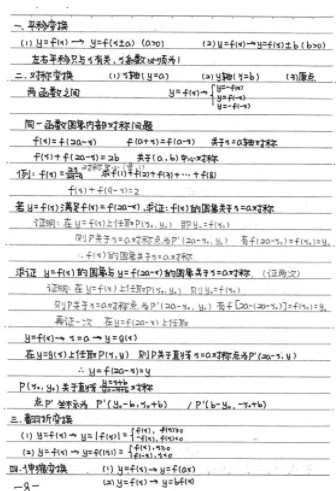 一、平移变换
(1) y=f(x) → y=f(x±a) (a>0) (2) y=f(x)→y=f(x)±b (b>0)
左右平移只与x有关, x系数必须为1
二、对称变换 (1) x轴 (y=a) (2) y轴 (x=b) (3)原点
两函数之间 y=f(x)→{y=-f(x) y=f(-x) y=-f(-x)
同一函数图象内部对称问题
f(x)=f(2a-x) f(a+x)=f(a-x) 关于x=a轴对称
f(x)+f(2a-x)=2b 关于(a,b)中心对称
例: f(x)= 求f(1)+f(2)+f(3)+…+f(8)
f(x)+f(9-x)=2
若y=f(x)满足f(x)=f(2a-x),求证:f(x)的图象关于x=a对称
证明:在y=f(x)上任取P(x₀,y₀) 即y₀=f(x₀)
则P关于x=a对称点为P'(2a-x₀,y₀) 有f(2a-x₀)=f(x₀)=y₀
∴f(x)的图象关于x=a对称
求证 y=f(x)的图象与y=f(2a-x)的图象关于x=a对称. (证两次)
证明:在y=f(x)上任取P(x₀,y₀) 则y₀=f(x₀)
则P关于x=a对称点为P'(2a-x₀,y₀) 有f[2a-(2a-x₀)]=f(x₀)=y₀
再证一次 在y=f(x)上任取
y=f(x)→x=a→y=g(x)
在y=g(x)上任取P(x,y) 则P关于直线x=a对称点为P'(2a-x,y)
∴y=f(2a-x)=y
P(x₀,y₀)关于直线 y=x+b y=-x+b 对称
点P'坐标为 P'(y₀-b,x₀+b) / P'(b-y₀,-x₀+b)
三、翻折变换
(1) y=f(x)→y=|f(x)|={f(x), f(x)≥0 -f(x), f(x)<0
(2) y=f(x)→y=f(|x|)={f(x), x≥0 f(-x), x<0
四、伸缩变换 (1) y=f(x)→y=f(ax)
(2) y=f(x)→y=bf(x)
-8-